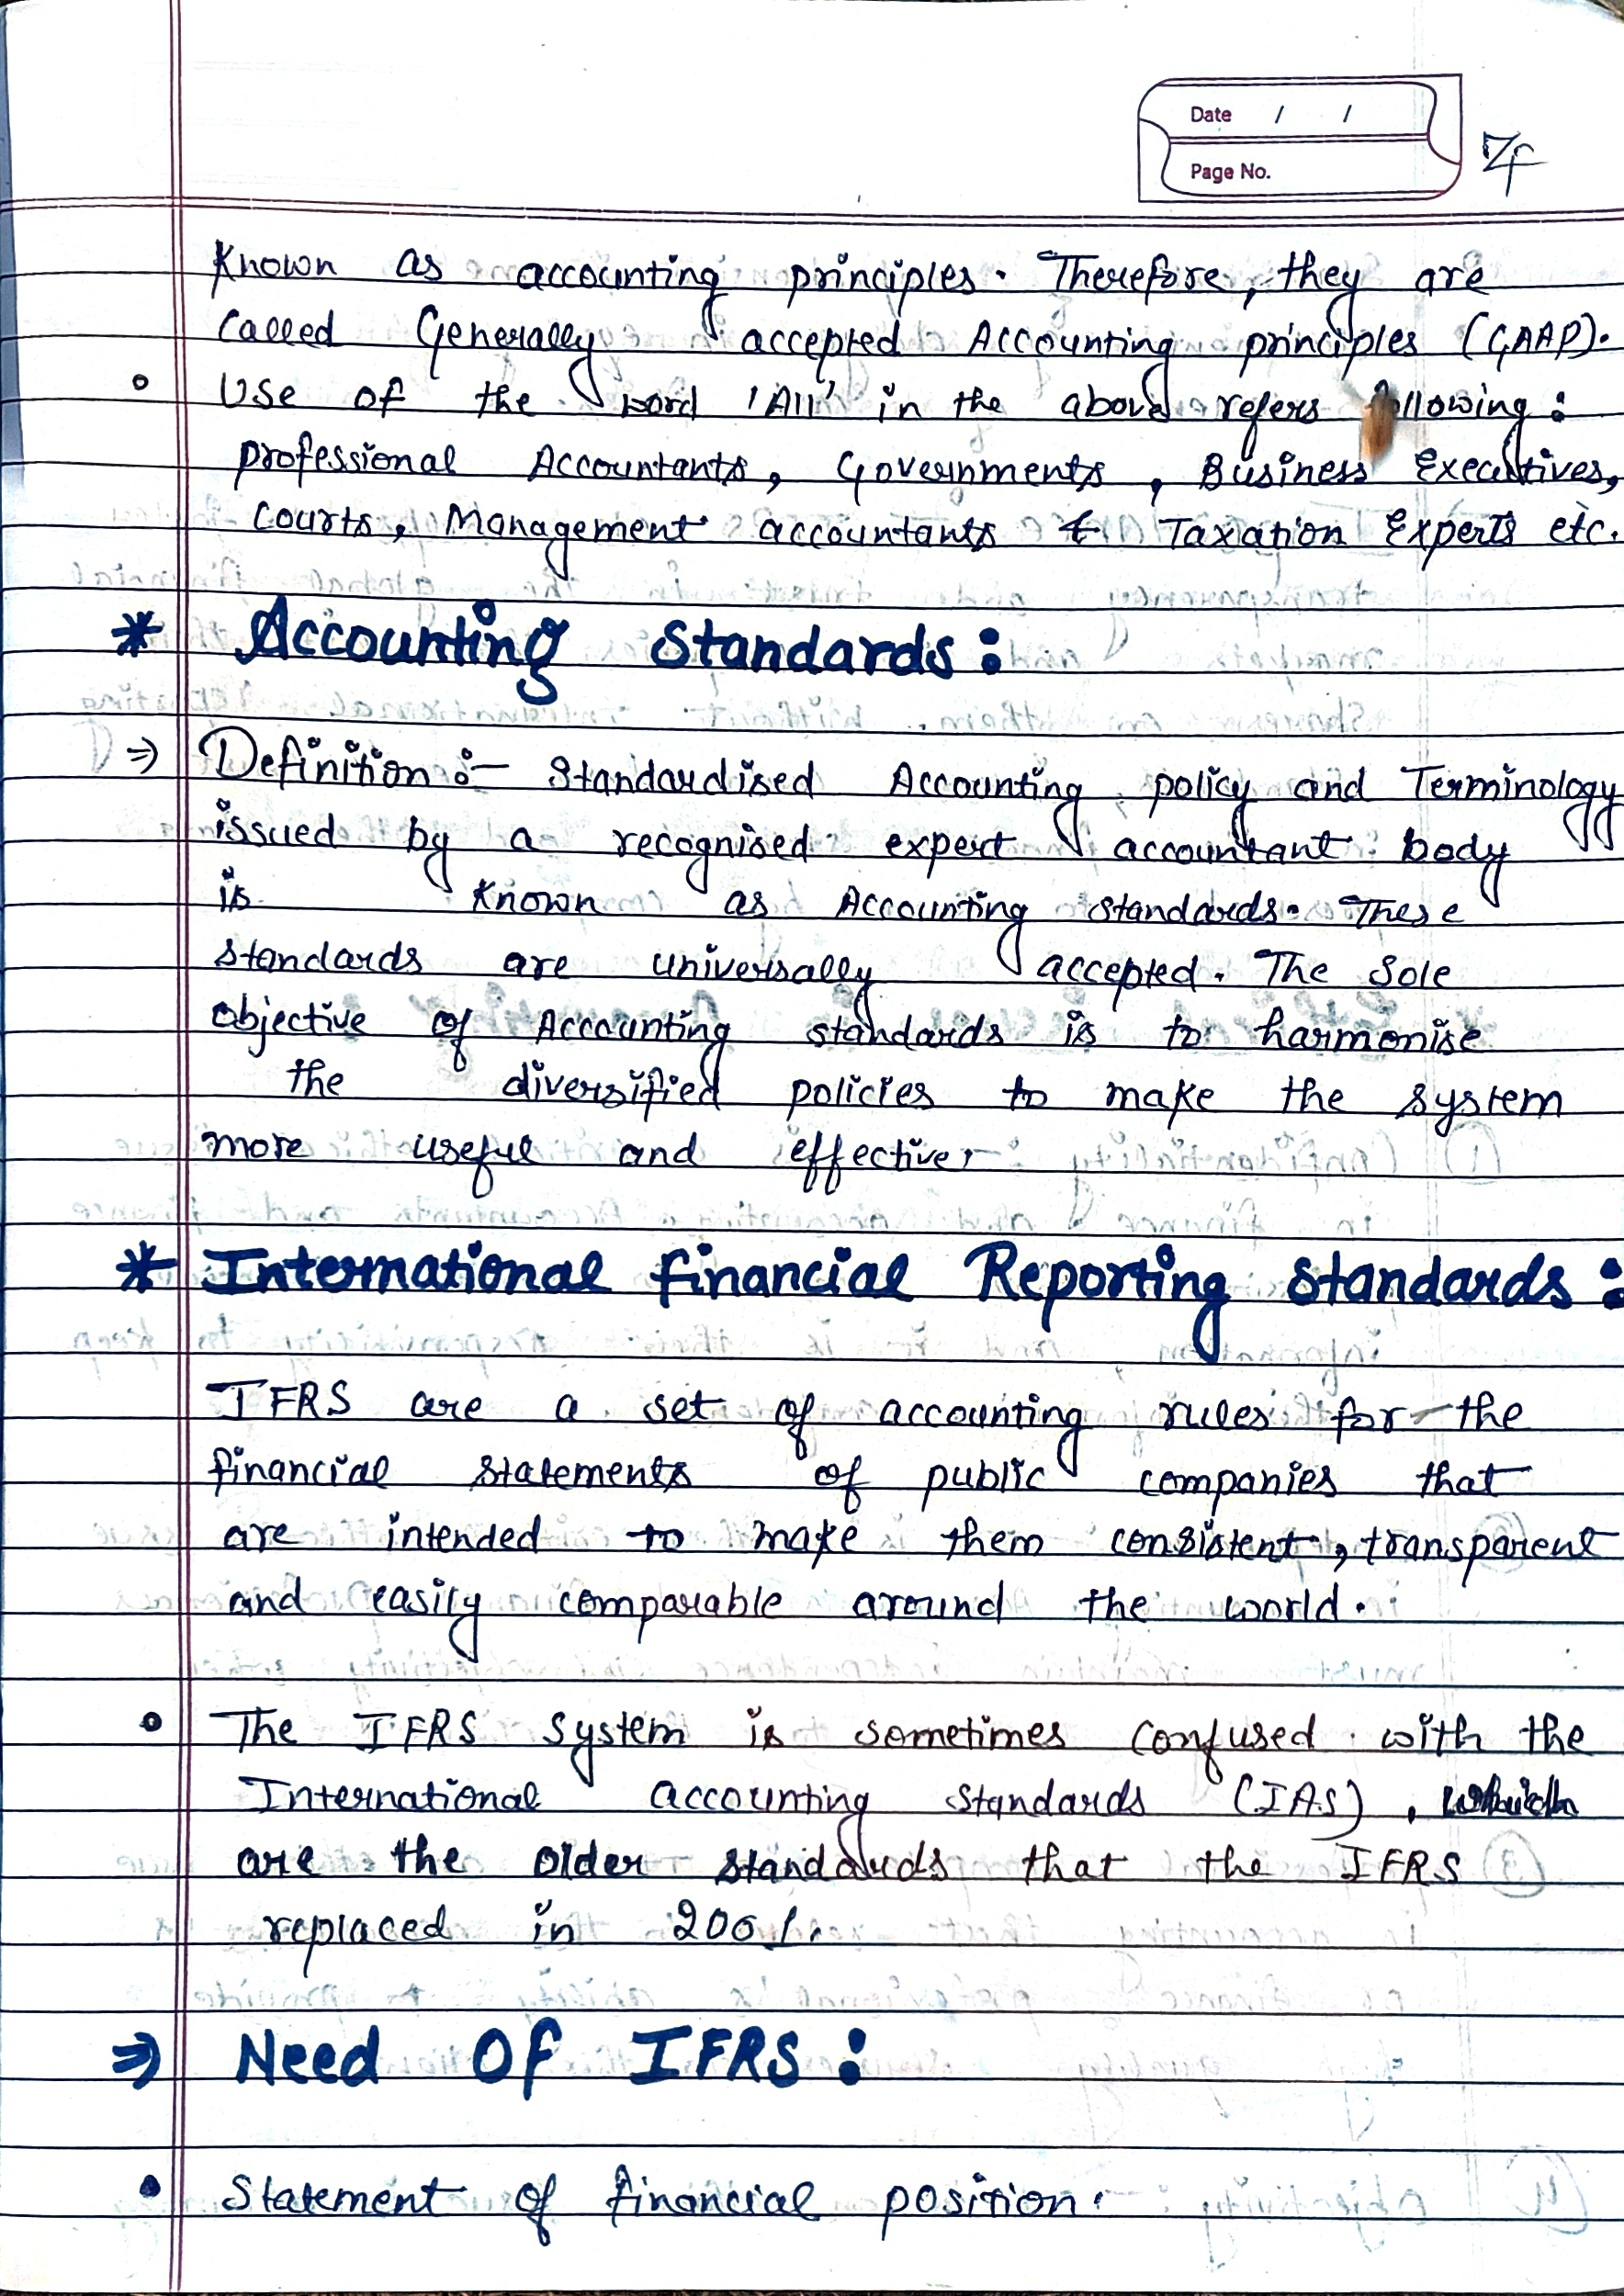 Date / /
Page No.
Known as accounting principles. Therefore, they are
called Generally accepted Accounting principles (GAAP).
Use of the word 'All' in the above refers following :
professional Accountants, Governments, Business Executives,
courts, Management accountants & Taxation Experts etc.
* Accounting Standards :
⇒ Definition :- Standardised Accounting policy and Terminology
issued by a recognised expert accountant body
is known as Accounting standards. These
standards are universally accepted. The Sole
objective of Accounting standards is to harmonise
the diversified policies to make the system
more useful and effective.
* International Financial Reporting Standards :
IFRS are a set of accounting rules for the
financial statements of public companies that
are intended to make them consistent, transparent
and easily comparable around the world.
• The IFRS System is sometimes confused with the
International accounting standards (IAS), which
are the older standards that the IFRS
replaced in 2001.
⇒ Need Of IFRS :
• Statement of financial position.